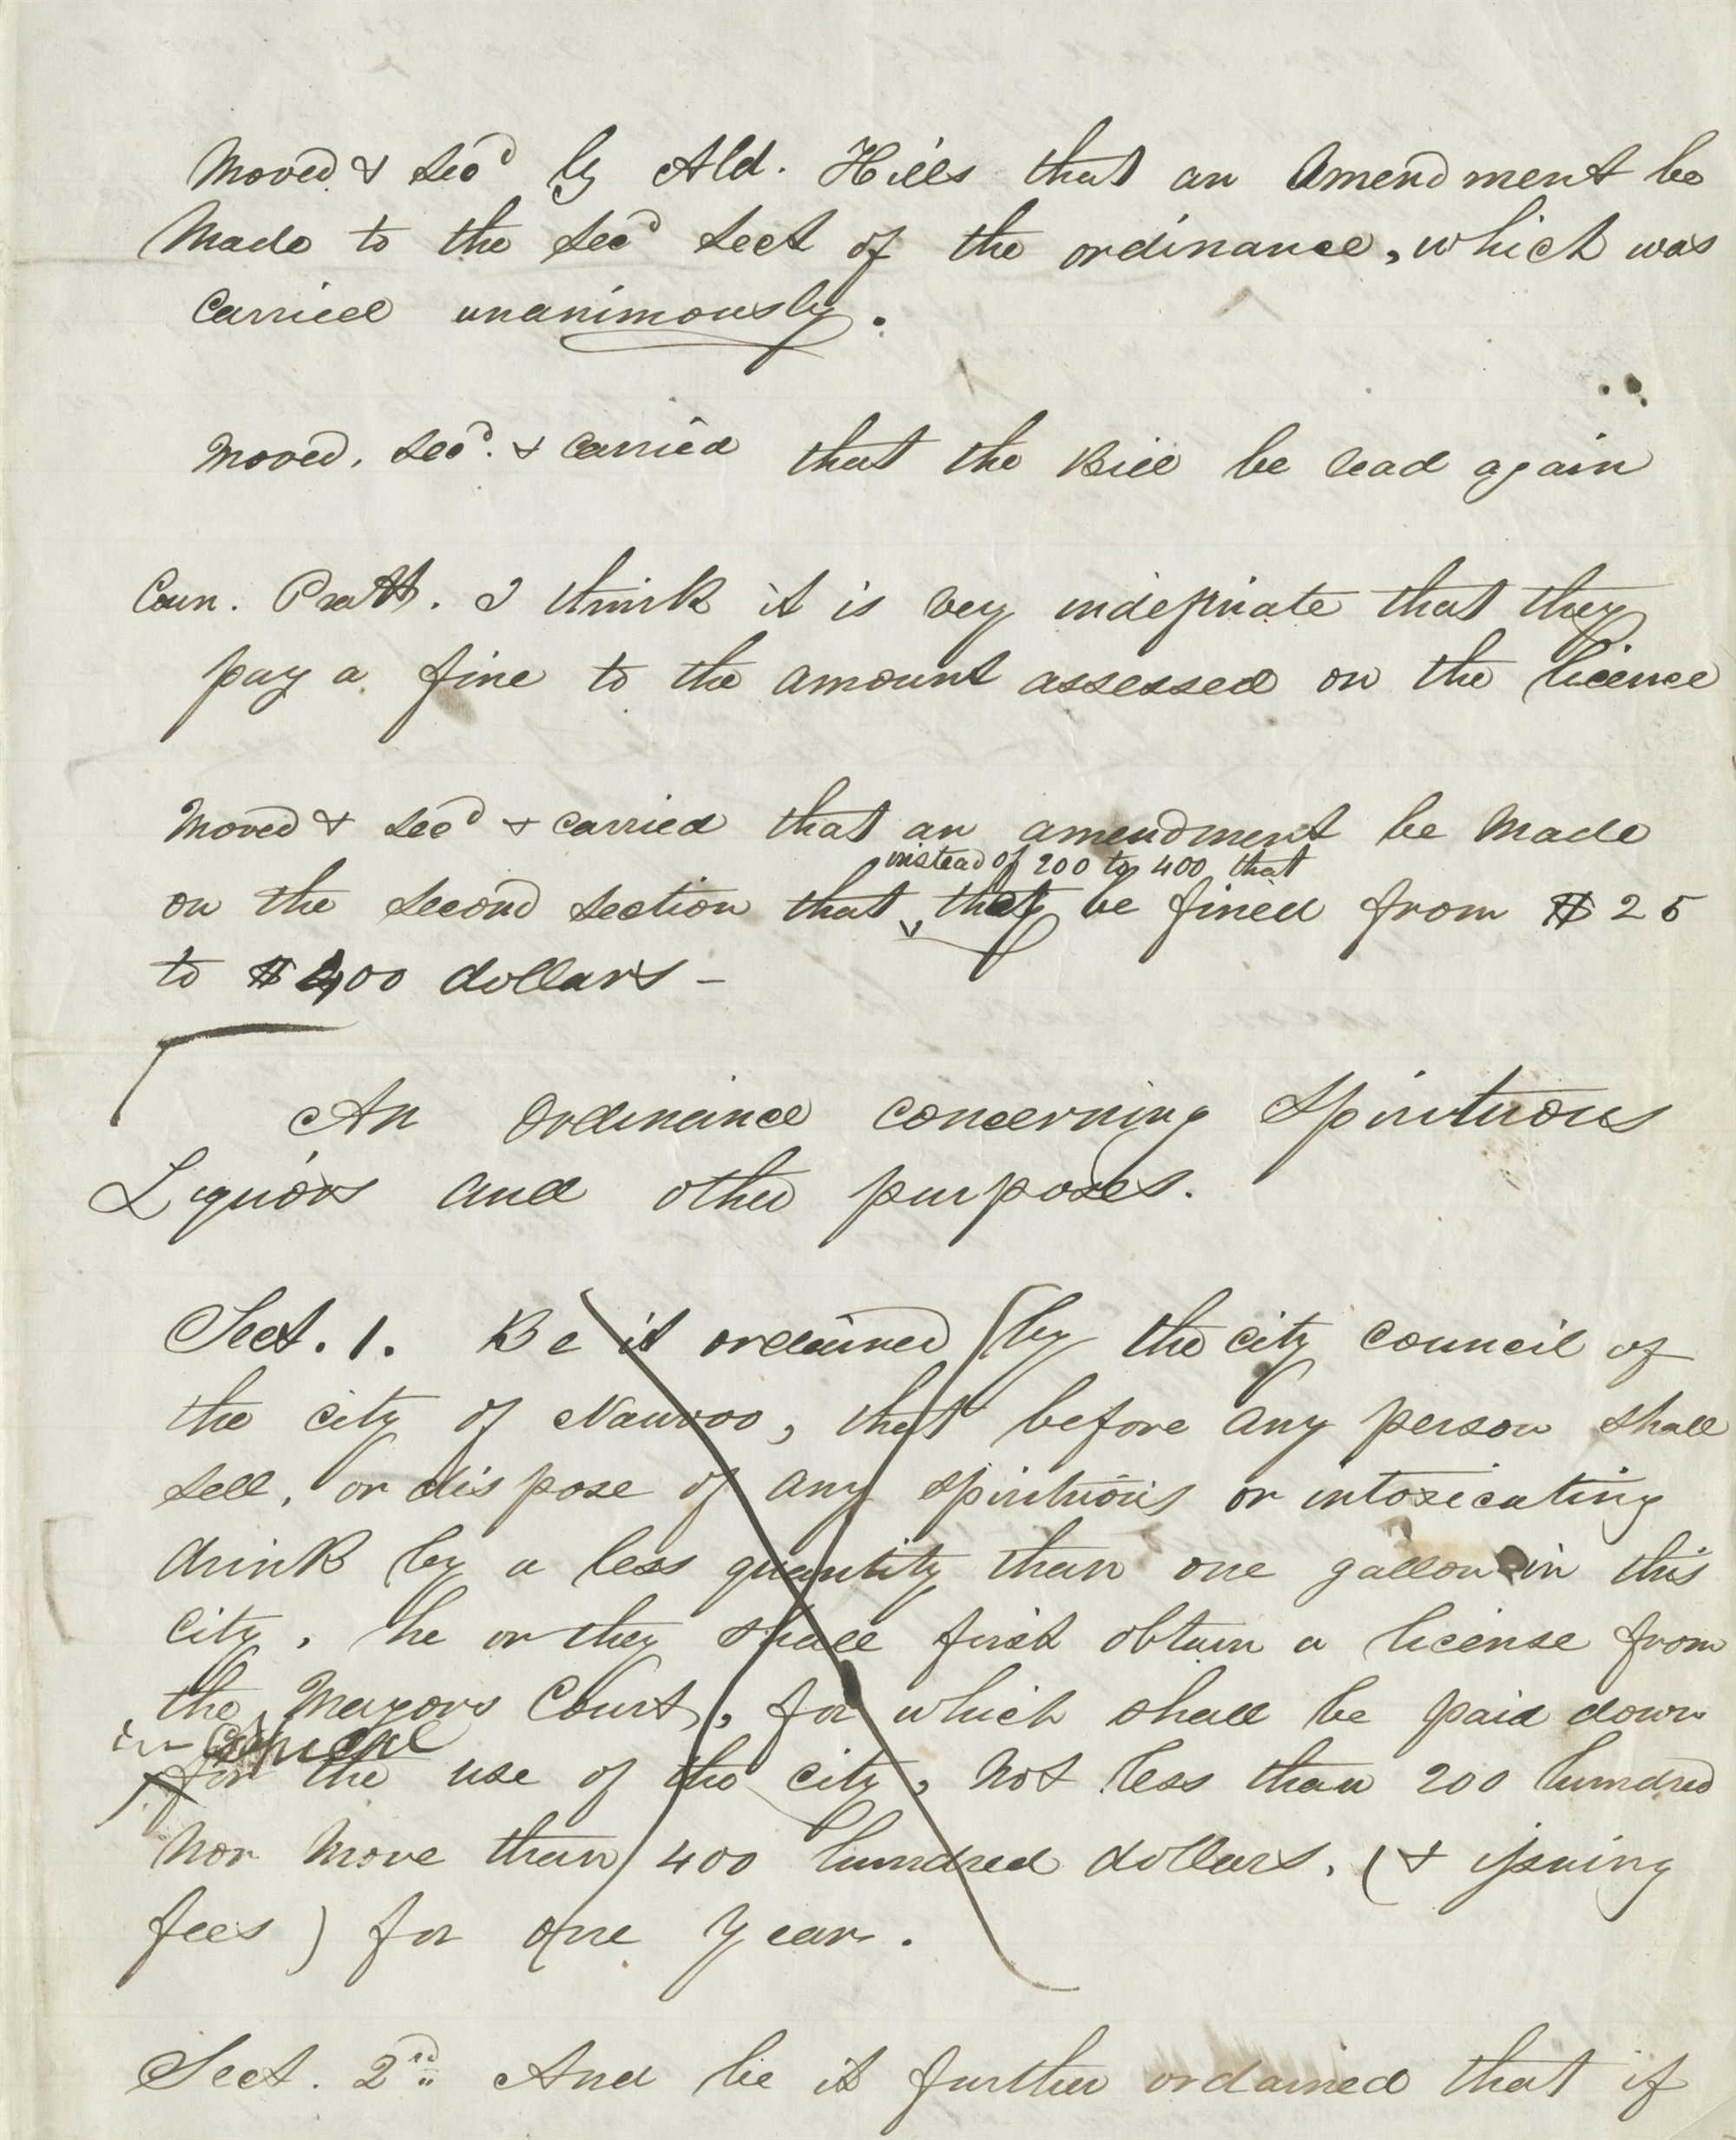 Moved & Secd by Ald. Hills that an Amendment be
Made to the Secd Sect of the ordinance, which was
Carried unanimously.
Moved, Secd. & Carried that the Bill be read again
Coun. Pratt. I think it is very indefinate that they
pay a fine to the amount assessed on the licence
Moved & Secd & carried that an amendment be Made
instead of 200 to 400 that
on the Second Section that they be fined from $ 25
to $400 dollars –
An Ordinance concerning Spirituous
Liquors and other purposes.
Sect. 1. Be it ordained by the city council of
the city of Nauvoo, that before any person shall
sell, or dispose of any spirituous or intoxicating
drink by a less quantity than one gallon in this
City, he or they shall first obtain a license from
the Mayors Court, for which shall be paid down
in
for the use of the city, not less than 200 hundred
nor more than 400 hundred dollars, (& issuing
fees) for one year.
Sect. 2nd And be it further ordained that if